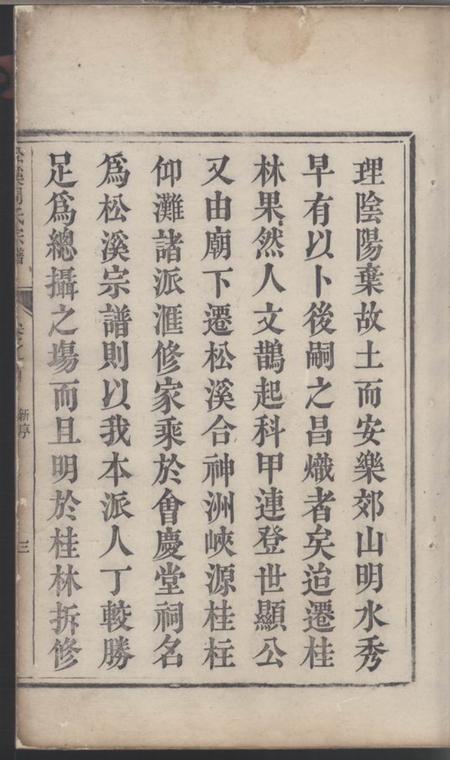 理陰陽棄故土而安樂郊山明水秀
早有以卜後嗣之昌熾者矣迨遷桂
林果然人文鵲起科甲連登世顯公
又由廟下遷松溪合神洲峽源桂柱
仰灘諸派滙修家乘於會慶堂祠名
爲松溪宗譜則以我本派人丁較勝
足爲總攝之塲而且明於桂林拆修
溪周氏宗譜
新序
三